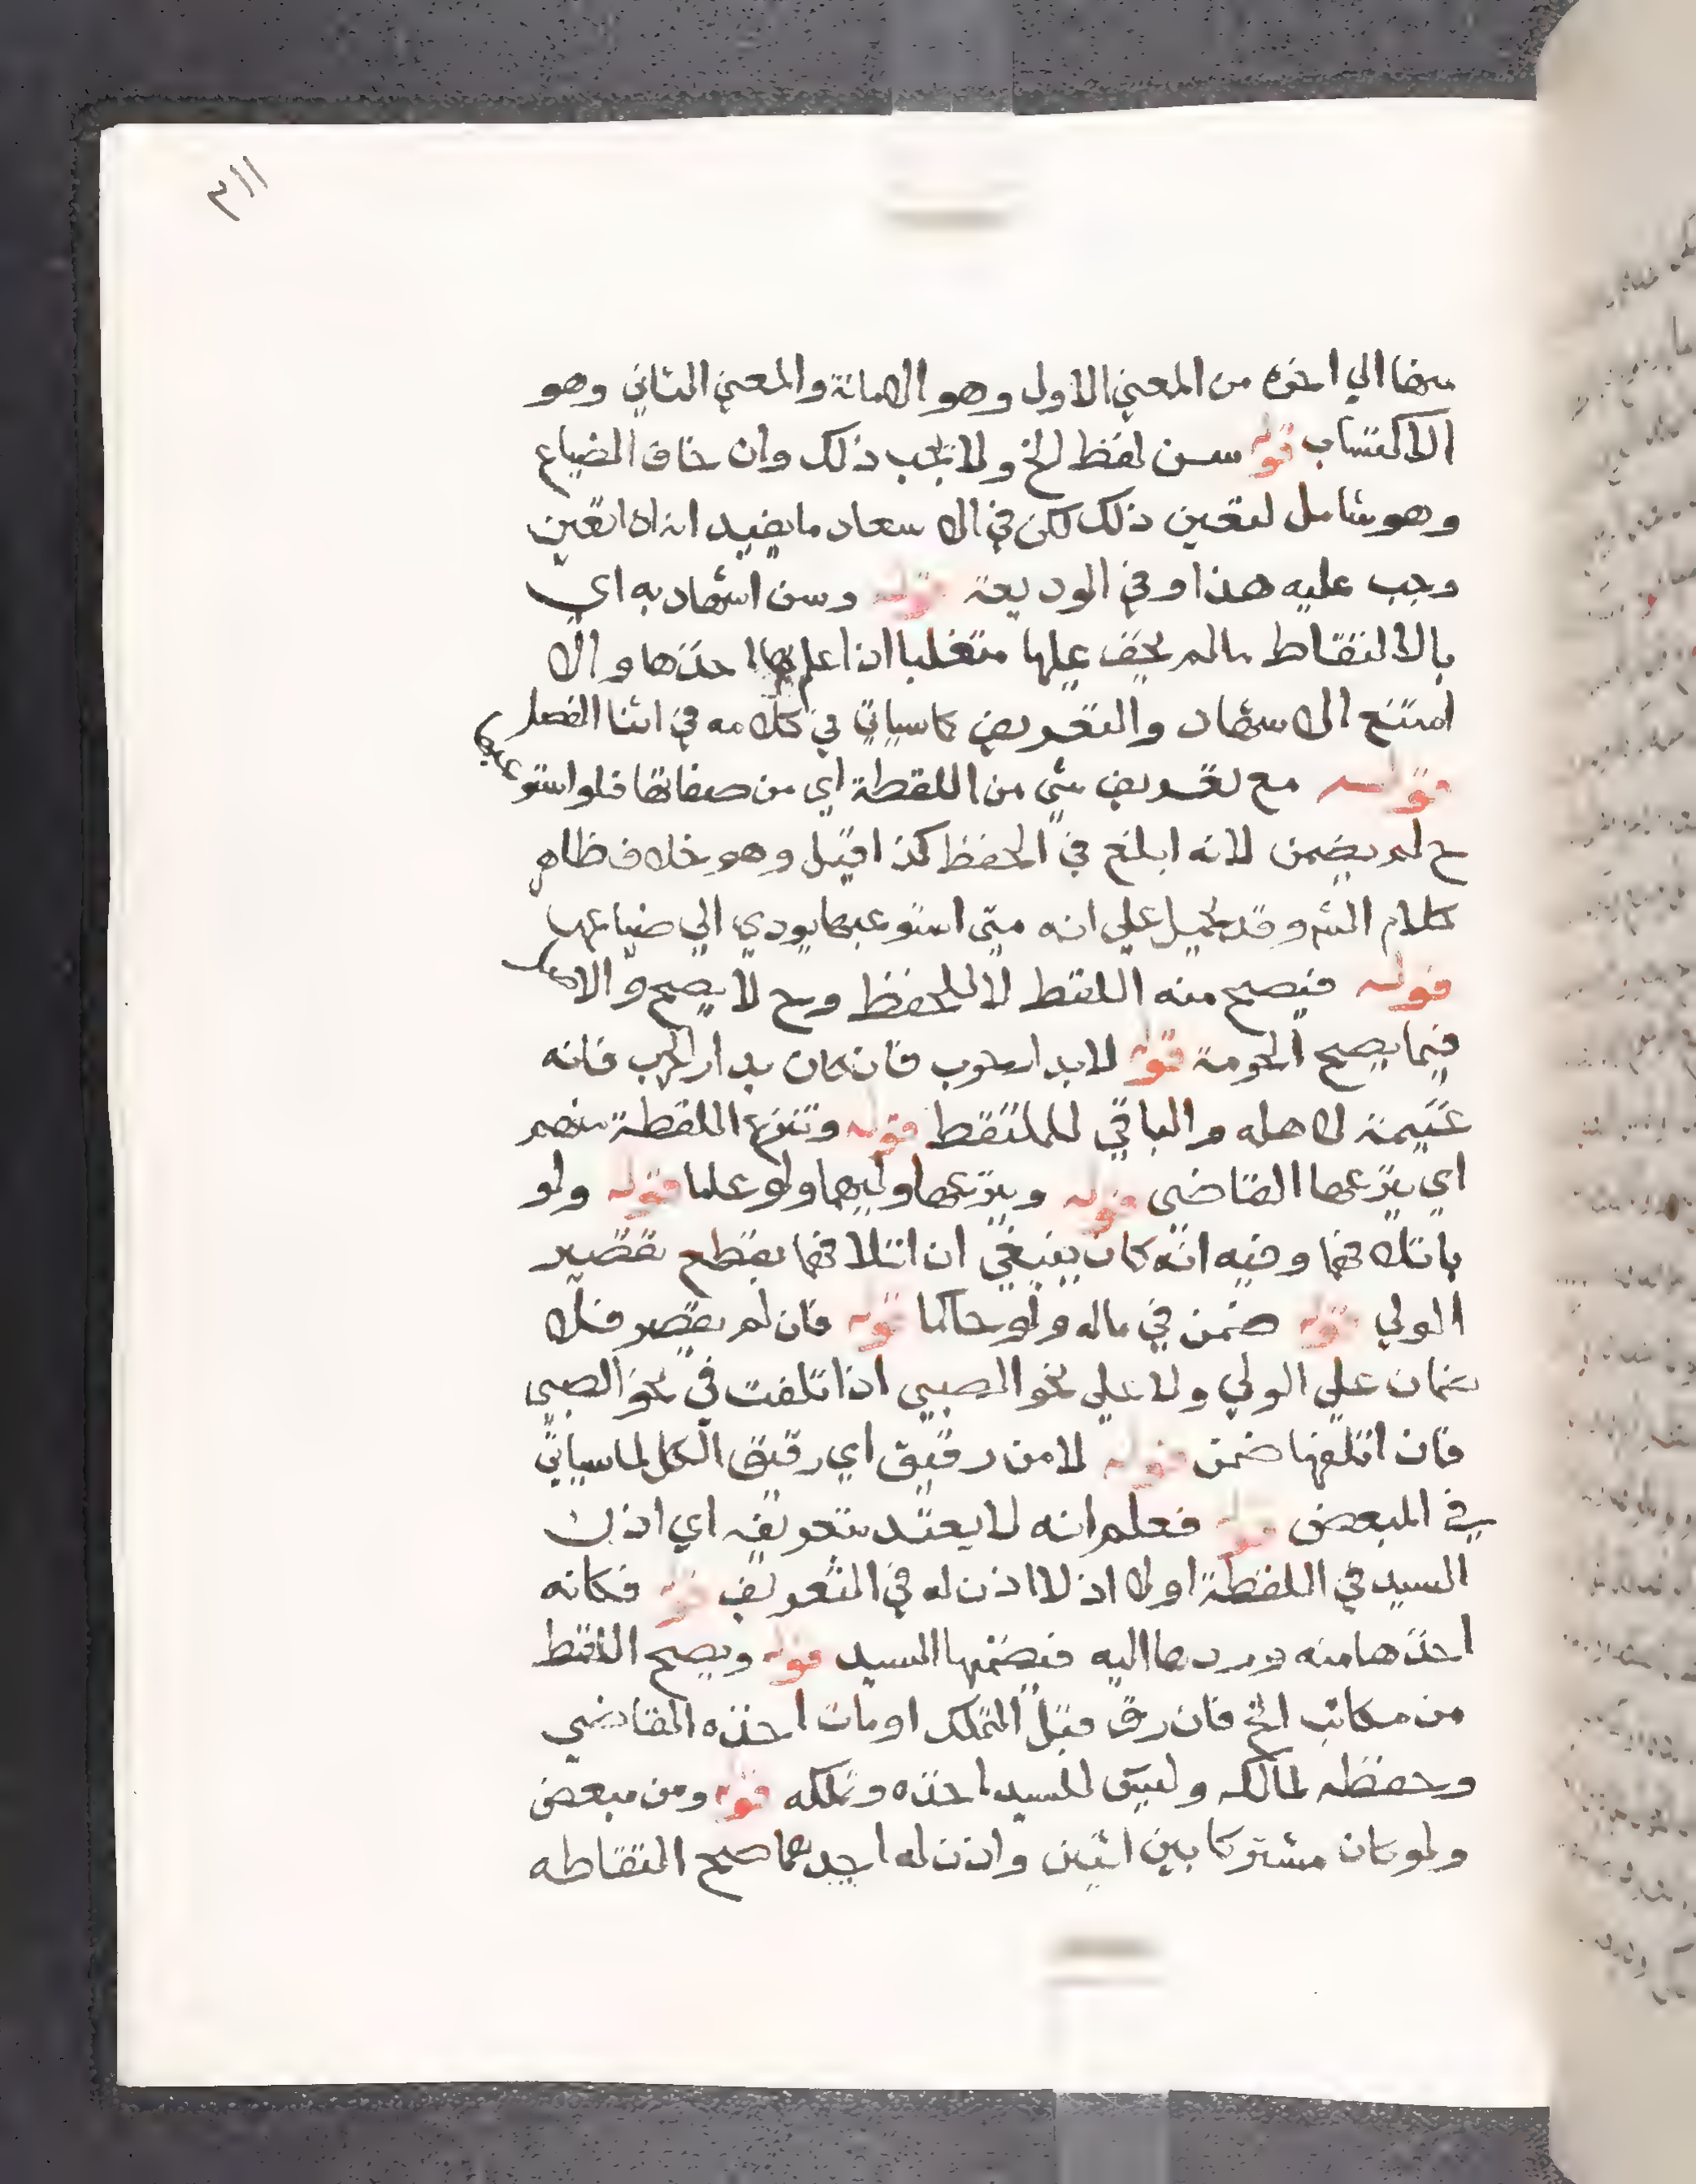 ٣١١
منها الي اخره من المعني الاول وهو الامانة والمعني الثاني وهو
الاكتساب قوله سن لقط الخ ولا يجب ذلك وان خاف الضياع
وهو شامل لتعين ذلك لكن في الاسعاد ما يفيد انه اذا تعين
وجب عليه هذا وفي الوديعة قوله وسن اشهاد به اي
بالالتقاط مالم يخف عليها متغلبا اذا علم بها اخذها والا
امتنع الاشهاد والتعريف كاسياتي في كلامه في اثنا الفصل
قوله مع تعريف شي من اللقطة اي من صفاتها فلو استوعبها
ح لم يضمن لانه ابلغ في الحفظ كذا قيل وهو خلاف ظاهر
كلام الشر وقد يحمل علي انه متي استوعبها يودي الي ضياعها
قوله فيصح منه اللقط لا للحفظ وح لا يصح والاصل
فيما يصح الحرمة قوله لا بدار حرب فان كان بدار الحرب فانه
غنيمة لاهله والباقي للملتقط قوله وتنزع اللقطة منهم
اي ينزعها القاضي قوله وينزعها وليهما ولو علما قوله ولو
باتلافهما وفيه انه كان ينبغي ان اتلافهما يقطع تقصير
الولي قوله ضمن في ماله ولو حاكما قوله فان لم يقصر فلا
ضمان علي الولي ولا علي نحو الصبي اذا تلفت في نحو الصبي
فان اتلفها ضمن قوله لا من رقيق اي رقيق الكل لما سياتي
في المبعض قوله فعلم انه لا يعتد بتعريفه اي اذن
السيد في اللقطة اولا اذ لا اذن له في التعريف قوله فكانه
اخذها منه وردها اليه فيضمنها السيد قوله ويصح اللقط
من مكاتب الخ فان رق قبل التملك او مات اخذه القاضي
وحفظه لمالكه وليس للسيد اخذه وتملكه قوله ومن مبعض
ولو كان مشتركا بين اثنين واذن له احدهما صح التقاطه